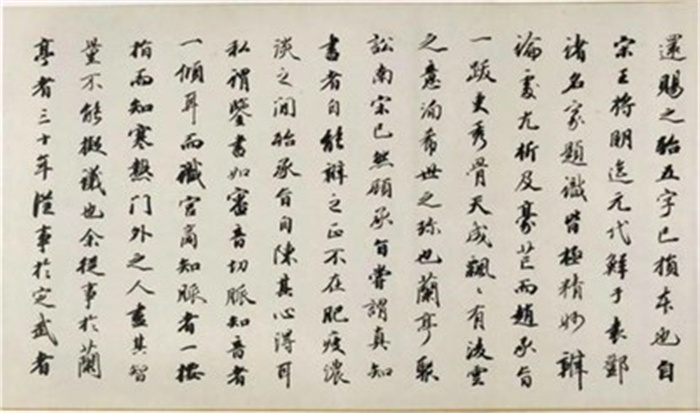 還賜之殆五字已損本也自
宋王將明迄元代鮮于袁鄧
諸名家題識皆極精妙辯
論處尤析及豪芒而趙承旨
一跋更秀骨天成飄〻有凌雲
之意洵希世之珍也蘭亭聚
訟南宋已然顧承旨嘗謂真知
書者自能辯之正不在肥瘦濃
淡之間殆承旨自陳其心得耳
私謂鑒書如審音切脈知音者
一傾耳而識宮商知脈者一
指而知寒熱門外之人盡其智
量不能擬議也余從事於蘭
亭者三十年從事於定武者